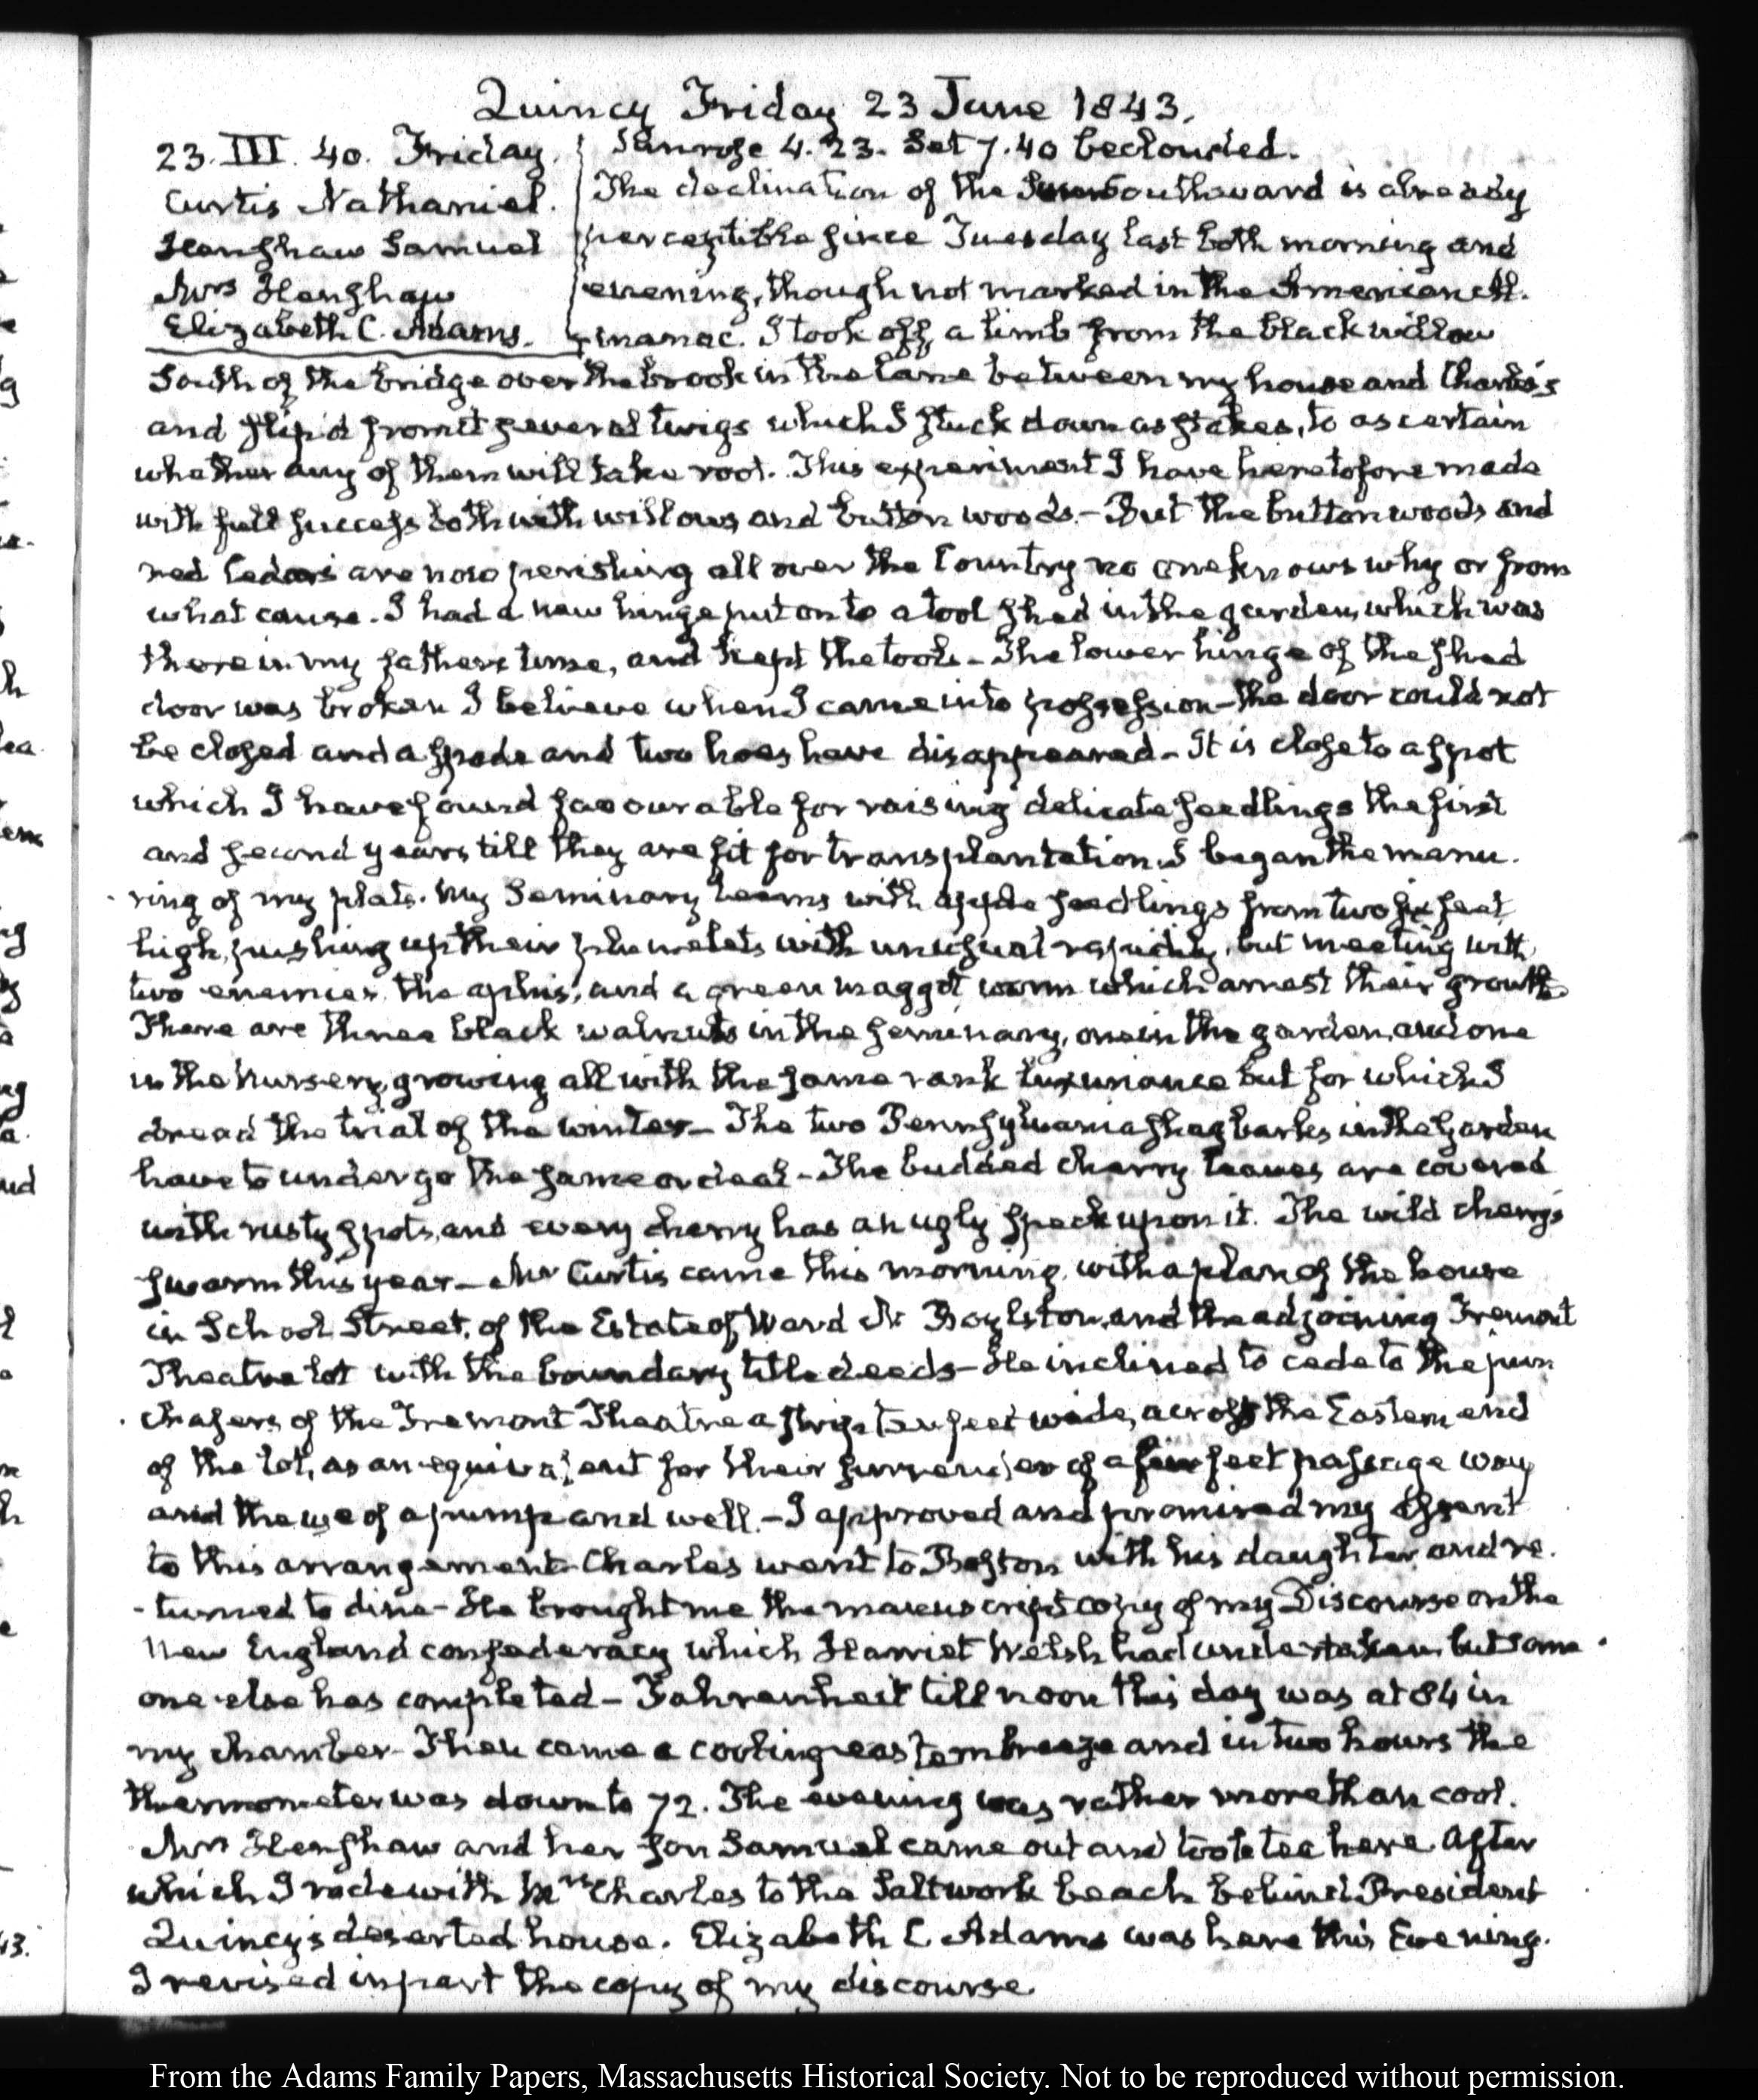 Quincy Friday 23 June 1843.
23. III. 40. Friday.
Curtis Nathaniel.
Henshaw Samuel
Mrs Henshaw
Elizabeth C. Adams.
Sun rose 4.23. Set 7.40 beclouded.
The declination of the Sun Southward is already
perceptible since Tuesday last both morning and
evening, though not marked in the American Al-
manac. I took off a limb from the black willow
South of the bridge over the brook in the lane between my house and Charles's
and slip'd from it several twigs which I stuck down as stakes, to ascertain
whether any of them will take root. This experiment I have heretofore made
with full success both with willows and button woods.- But the button woods and
red Cedars are now perishing all over the Country no one knows why or from
what cause. I had a new hinge put on to a tool shed in the garden, which was
there in my father's time, and kept the tools- The lower hinge of the shed
door was broken I believe when I came into possession- the door could not
be closed and a spade and two hoes have disappeared- It is close to a spot
which I have found favourable for raising delicate seedlings the first
and second years till they are fit for transplantation. I began the manu-
ring of my plats. My Seminary teems with apple seedlings from two feet
high, pushing up their plumelets with unusual rapidity, but meeting with
two enemies, the aphis, and a green maggot worm which arrest their growth
There are three black walnuts in the seminary, one in the garden, and one
in the Nursery, growing all with the same rank luxuriance but for which I
dread the trial of the winter- The two Pennsylvania shagbarks in the Garden
have to undergo the same ordeal- The budded cherry leaves are covered
with rusty spots, and every cherry has an ugly speck upon it. The wild cherries
swarm this year- Mr Curtis came this morning, with a plan of the house
in School Street, of the Estate of Ward N. Boylston, and the adjoining Tremont
Theatre lot with the boundary title deeds- He inclined to cede to the pur-
chasers of the Tremont Theatre a strip ten feet wide, across the Eastern end
of the lot, as an equivalent for their surrender of a feet passage way
and the use of a pump and well.- I approved and promised my assent
to this arrangement- Charles went to Boston with his daughter and re-
-turned to dine- He brought me the manuscript copy of my Discourse on the
New England confederacy which Harriet Welsh had undertaken but some
one else has completed- Fahrenheit till noon this day was at 84 in
my chamber- Then came a cooling eastern breeze and in two hours the
thermometer was down to 72. The evening was rather more than cool.
Mrs Henshaw and her son Samuel came out and took tea here. After
which I rode with Mrs Charles to the Saltwork beach behind President
Quincy's deserted house. Elizabeth C. Adams was here this Evening.
I revised in part the copy of my discourse
From the Adams Family Papers, Massachusetts Historical Society. Not to be reproduced without permission.